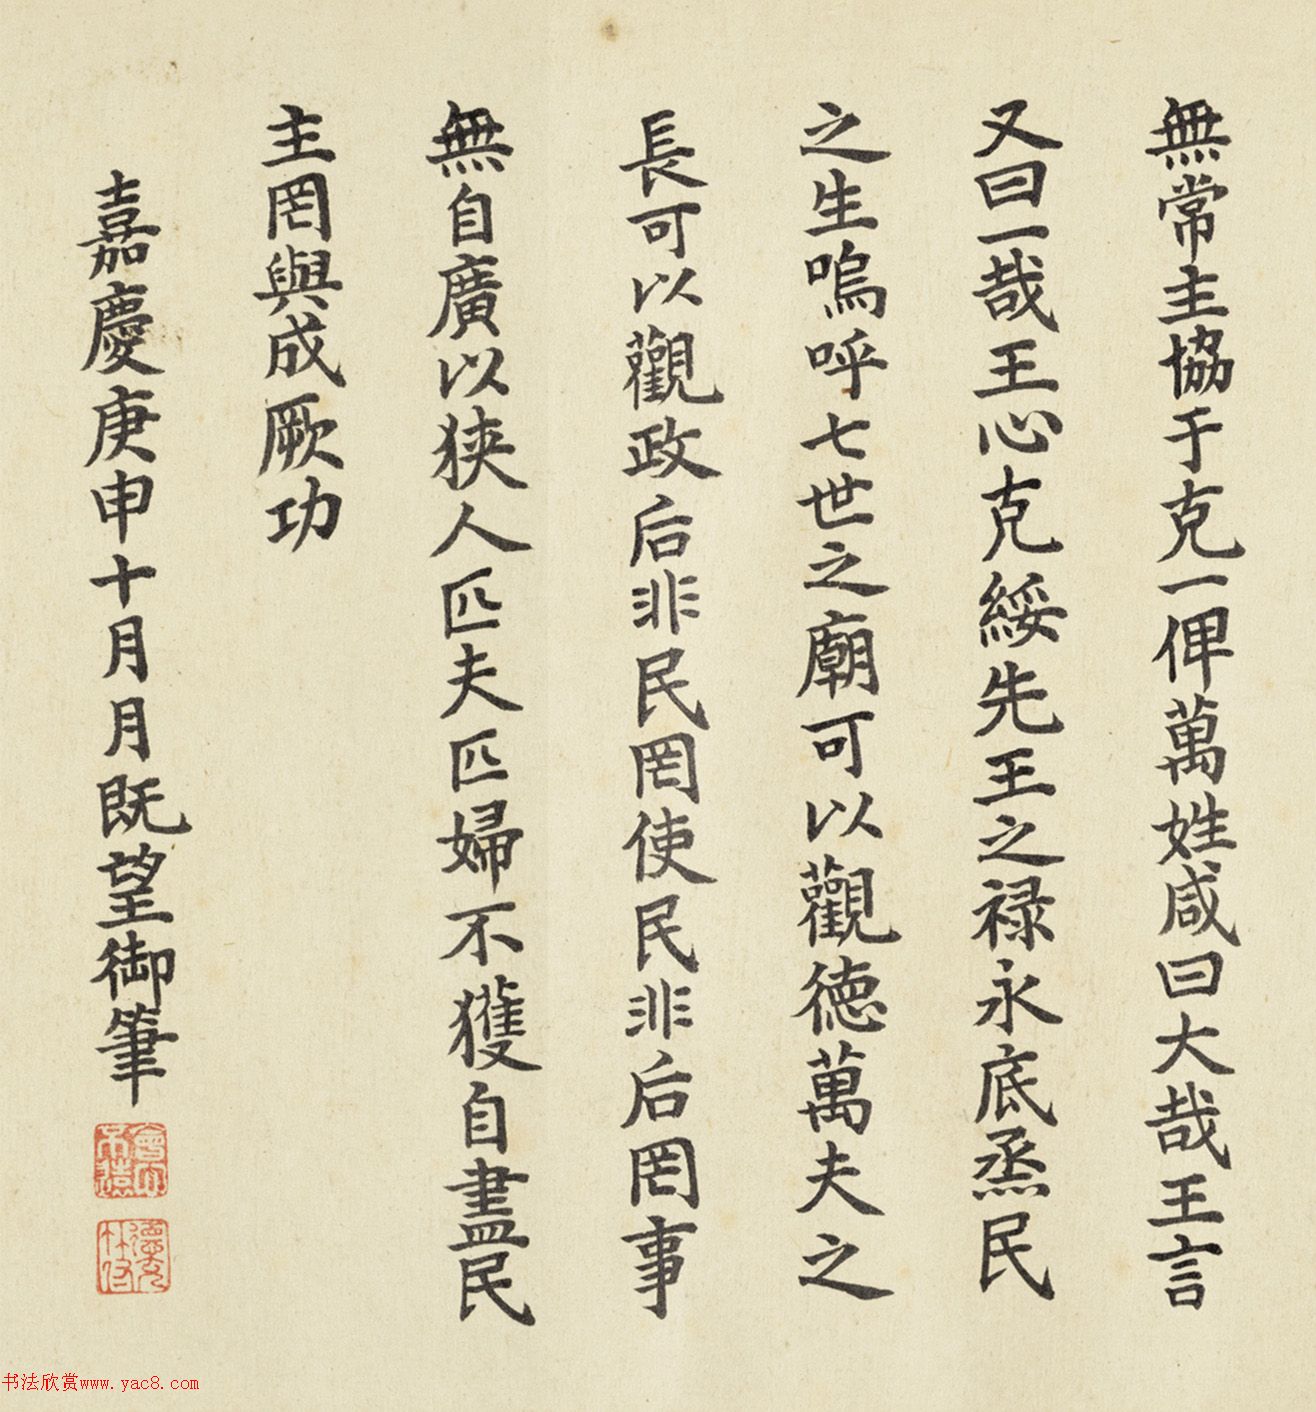 無常主協于克一俾萬姓咸曰大哉王言
又曰一哉王心克綏先王之禄永底烝民
之生嗚呼七世之廟可以觀德萬夫之
長可以觀政后非民罔使民非后罔事
無自廣以狹人匹夫匹婦不獲自盡民
主罔與成厥功
嘉慶庚申十月月既望御筆
书法欣赏www.yac8.com